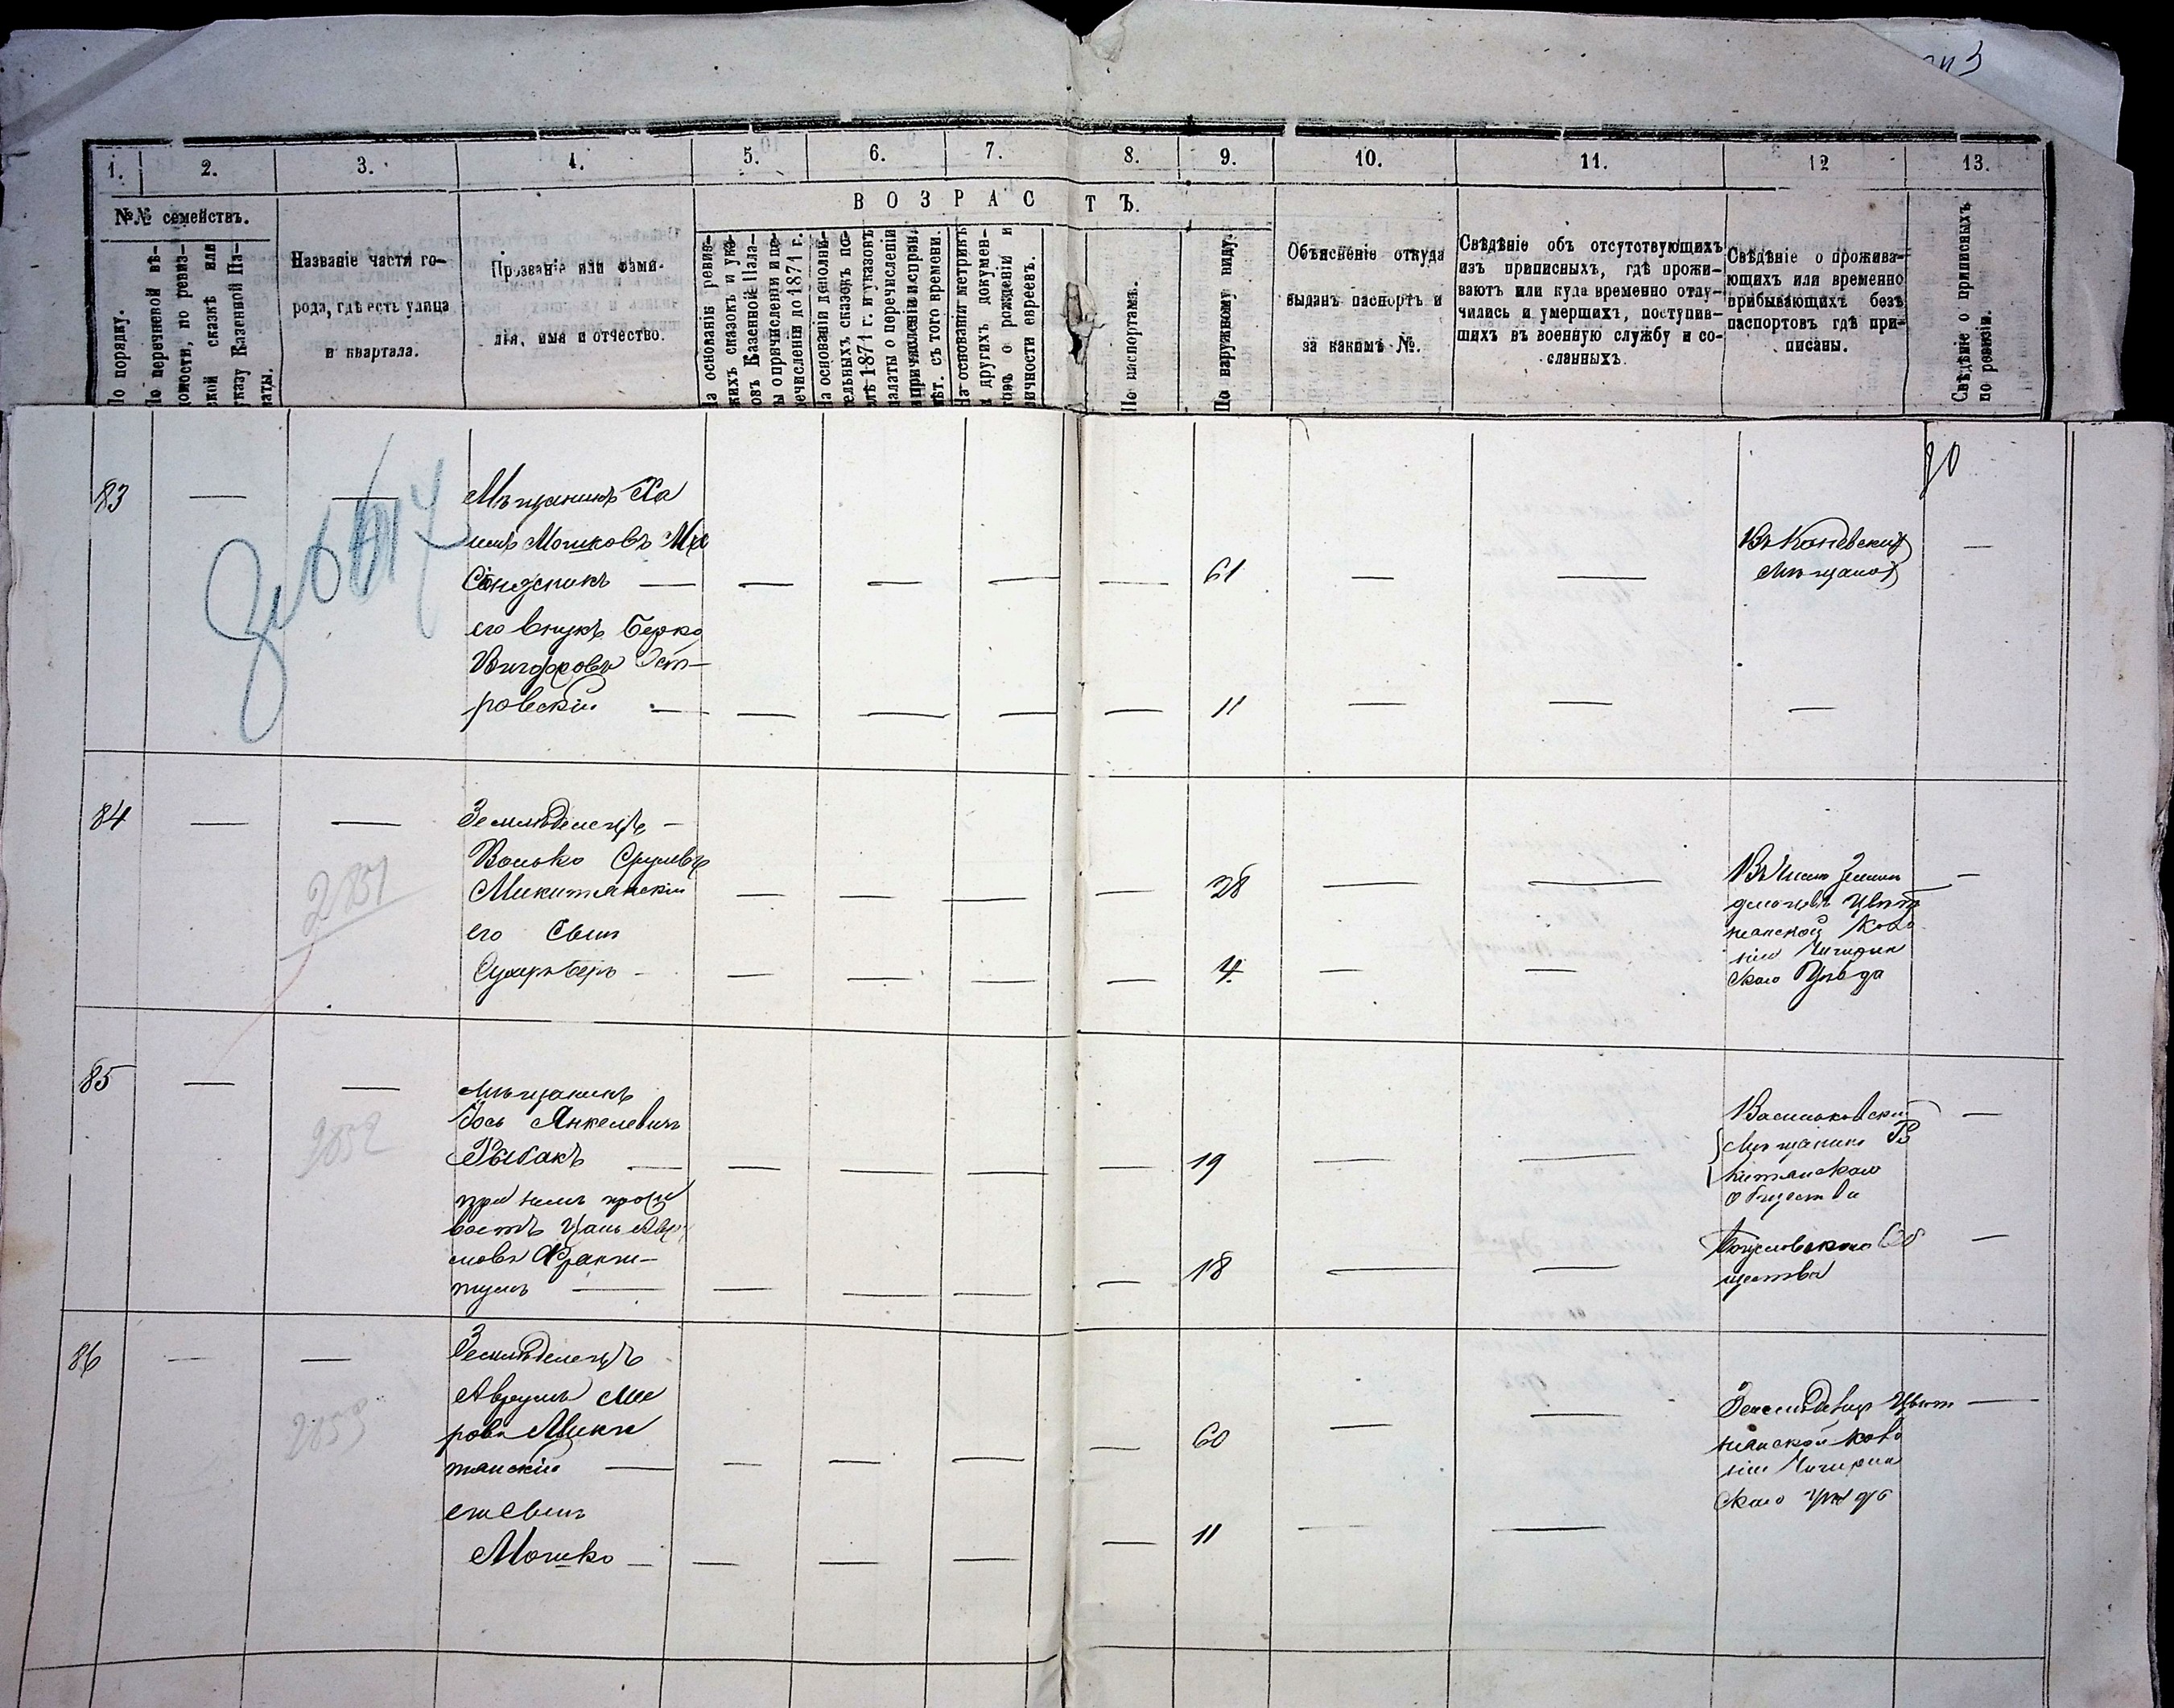 1.
2.
3.
4.
5.
6.
7.
8.
9.
10.
11.
12
13.
№№ семействъ.
ВОЗРАСТЪ.
По порядку.
По перечневой вѣ-
домости, по ревиз-
ской сказкѣ или
указу Казенной Па-
латы.
Названіе части го-
рода, гдѣ есть улица
и квартала.
Прозваніе или фами-
лія, имя и отчество.
На основаніи ревиз-
скихъ сказокъ и ука-
зовъ Казенной Пала-
ты о причисленіи и пе-
речисленіи до 1871 г.
На основаніи дополни-
тельныхъ сказокъ по-
слѣ 1871 г. и указовъ
палаты о перечисленіи
и причисленіи и исправ.
лѣт. съ того времени.
На основаніи метрикъ
и другихъ докумен-
товъ о рожденіи и
личности евреевъ.
По паспортамъ.
По наружному виду.
Объясненіе откуда
выданъ паспортъ и
за какимъ №.
Свѣдѣніе объ отсутствующихъ
изъ приписныхъ, гдѣ прожи-
ваютъ или куда временно отлу-
чились и умершихъ, поступив-
шихъ въ военную службу и со-
сланныхъ.
Свѣдѣніе о прожива-
ющихъ или временно
прибывающихъ безъ
паспортовъ гдѣ при-
писаны.
Свѣдѣніе о приписныхъ
по ревизіи.
83 — — Мѣщанинъ Ха
имъ Мошковъ
— — — — — 61 — — Въ Каневскихъ —
Мѣщанахъ
его внукъ Берко
Ост-
ровскій — — — — — 11 — — —
84 — — Земледѣлецъ —
Волько Срулевъ
Микитянскій — — — — 28 — — —
его Сынъ
Беръ — — — — — 4 — —
Въ числѣ
Цвѣт
нянской Коло
ніи Чигирин
скаго Уѣзда
2851
85 — — Мѣщанинъ
Іось Янкелевичъ
Рыбакъ — — — — — 19 — —
Васильковскій —
Мѣщанинъ
общества
2852
при немъ прожи
ваетъ
18 — —
Богуславскаго Об —
щества
86 — — Земледѣлецъ
Аврумъ Ме
ровъ Мики
тянскій — — — — — 60 — —
Цвѣт —
нянской коло
ніи Чигирин
скаго уѣзда
2853
его сынъ
Мошко — — — — — 11 — —